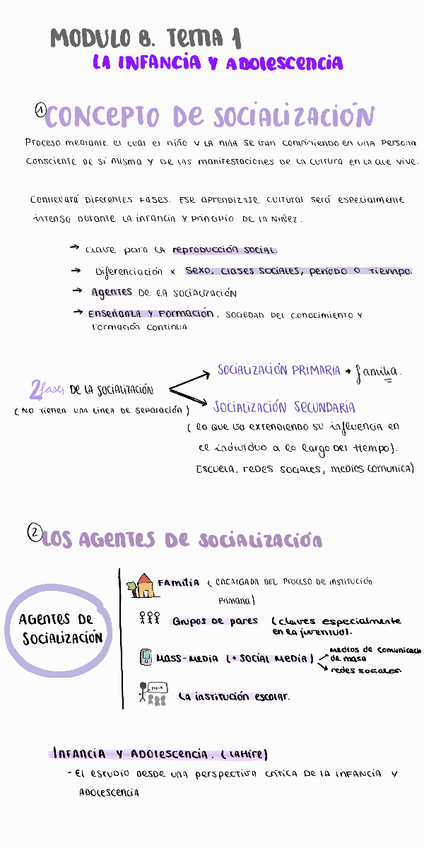 MODULO 8. TEMA 1
LA INFANCIA Y ADOLESCENCIA
① CONCEPTO DE SOCIALIZACIÓN
Proceso mediante el cual el niño y la niña se van convirtiendo en una persona
consciente de sí misma y de las manifestaciones de la cultura en la que vive.
Conllevará diferentes fases. Ese aprendizaje cultural será especialmente
intenso durante la infancia y principio de la niñez.
→ clave para la reproducción social.
→ Diferenciación x sexo, clases sociales, período o tiempo.
→ Agentes de la socialización
→ Enseñanza y formación. Sociedad del conocimiento y
formación continua
2 fases de la socialización
(no tienen una línea de separación)
SOCIALIZACIÓN PRIMARIA → familia.
SOCIALIZACIÓN SECUNDARIA
(lo que va extendiendo su influencia en
el individuo a lo largo del tiempo).
Escuela, redes sociales, medios comunica)
② LOS AGENTES DE SOCIALIZACIÓN
AGENTES DE
SOCIALIZACIÓN
Familia (encargada del proceso de institución
primaria)
Grupos de pares (claves especialmente
en la juventud).
Mass-media (+ social media) → medios de comunicac
de masa
→ redes sociales.
La institución escolar.
Infancia y adolescencia. (Lahire)
- El estudio desde una perspectiva crítica de la infancia y
adolescencia